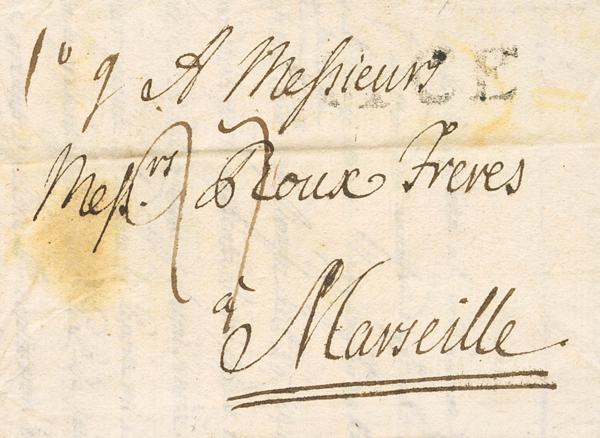 1º 9 A Messieurs
NICE
Mess.rs Roux Freres
à Marseille.